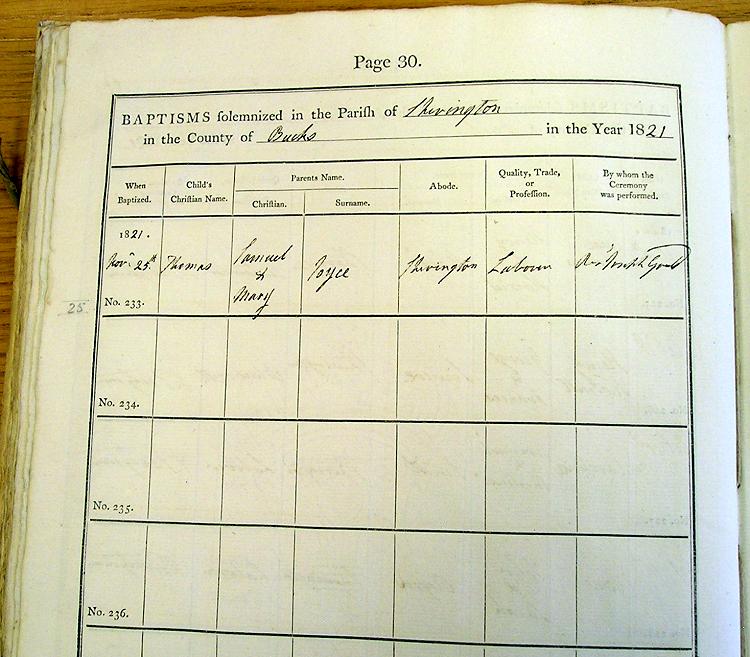 Page 30.
BAPTISMS solemnized in the Parish of Shivington
in the County of Bucks in the Year 1821
When Baptized.
Child's Christian Name.
Parents Name.
Christian.
Surname.
Abode.
Quality, Trade, or Profession.
By whom the Ceremony was performed.
1821.
Novr 25th
No. 233.
Thomas
Samuel
&
Mary
Joyce
Shivington
Labourer
Revd Joseph Gould
25
No. 234.
No. 235.
No. 236.